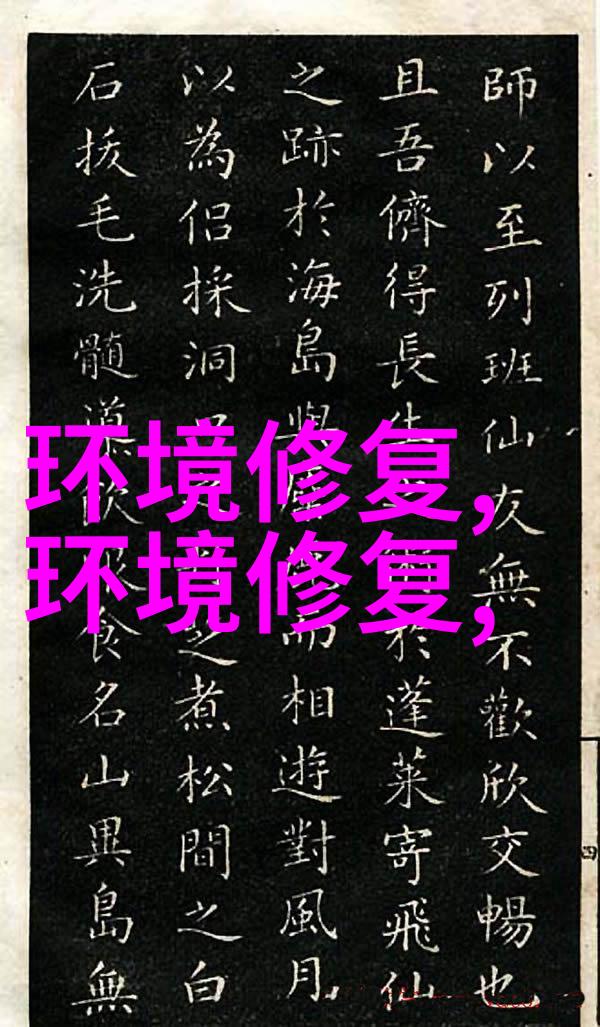 師以至列班仙友無不歡欣交暢也
且吾儕得長生於蓬萊寄飛仙
之跡於海島與而相遊對風月
以為侶採洞之煮松間之白
石拔毛洗髓飲食名山異島無
环境修复,
环境修复,
四